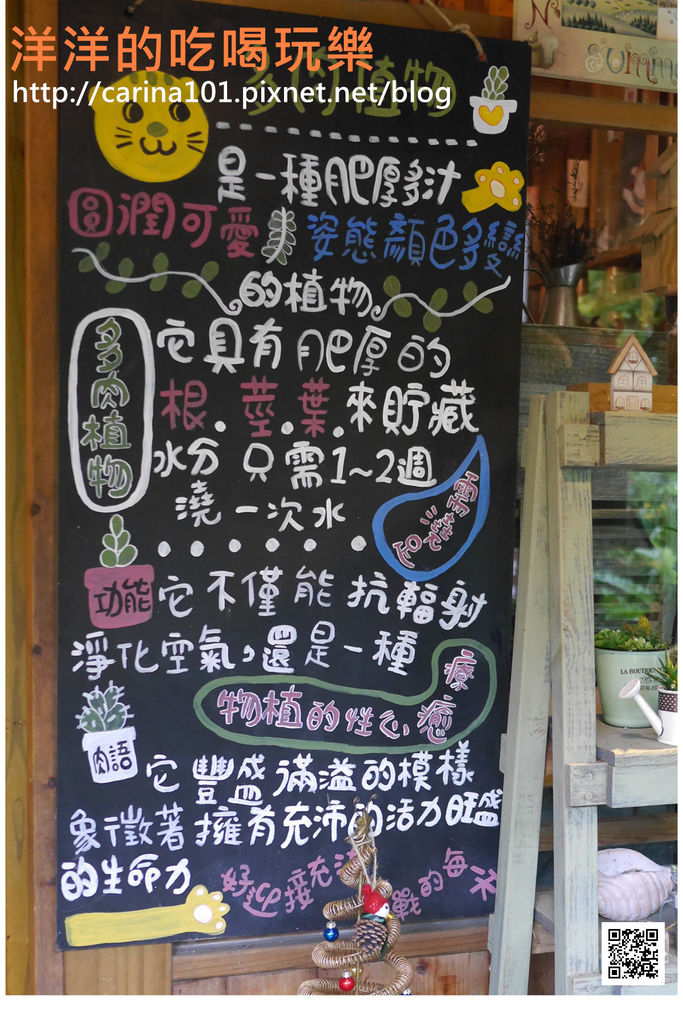 洋洋的吃喝玩樂
http://carina101.pixnet.net/blog
多肉植物
是一種肥厚多汁
圓潤可愛 姿態顏色多變
的植物
多肉植物
它具有肥厚的
根.莖.葉.來貯藏
水分 只需1~2週
澆一次水
功能
它不僅能抗輻射
淨化空氣,還是一種
療癒心性的植物
肉語
它豐盛滿溢的模樣
象徵著擁有充沛的活力旺盛
的生命力
好迎接充滿
戰的每天
LA BOUTIQUE